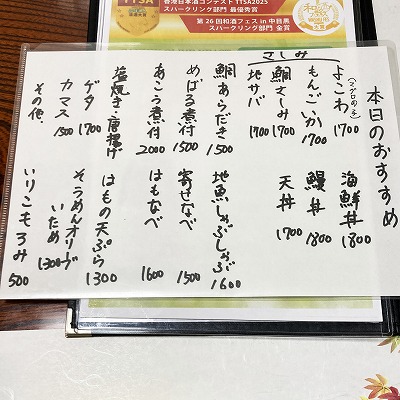 香港日本酒コンテストTTSA2025
スパークリング部門 最優秀賞
第26回和酒フェスin中目黒
スパークリング部門 金賞
本日のおすすめ
さしみ
よこわ 1700
(マグロの子)
もんごいか 1700
鯛さしみ 1700
地サバ 1700
鯛あらだき 1500
めばる煮付 1500
あこう煮付 2000
塩焼き・唐揚げ
ゲタ 1700
カマス 1500
その他、
海鮮丼 1800
鰻丼 1800
天丼 1700
地魚しゃぶしゃぶ 1600
寄せなべ 1500
はもなべ 1600
はもの天ぷら 1300
そうめんオリーブいため 1300
いりこもろみ 500